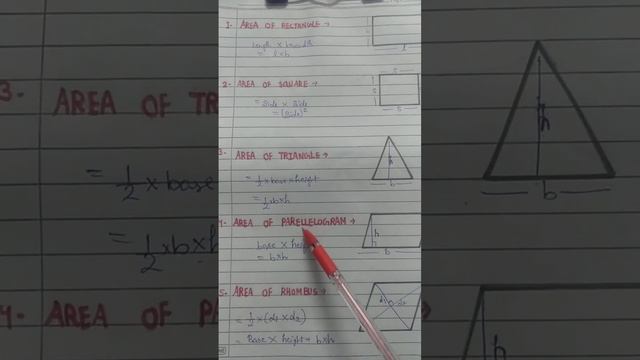 1- AREA OF RECTANGLE →
length × breadth
= l×b
l
2- AREA OF SQUARE →
= Side × Side
= (Side)²
S
S
3- AREA OF TRIANGLE →
= 1/2 × base × height
= 1/2 × b × h
h
b
4- AREA OF PARELLELOGRAM →
base ×
= b×h
h
b
5- AREA OF RHOMBUS →
= 1/2 × (d1 × d2)
= Base × height = b×h
d1
d2
3- AREA OF TR
= 1/2 × base
= 1/2 × b × h
4- AREA OF PA
h
b
h